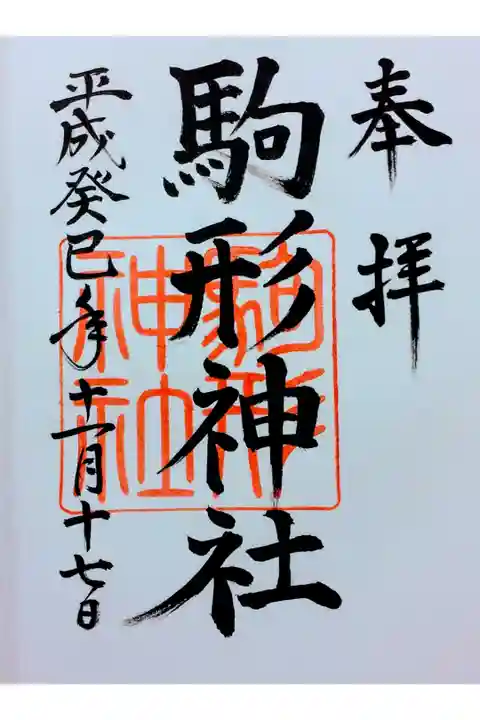 奉拝
駒形神社
駒形神社
平成癸巳年十一月十七日